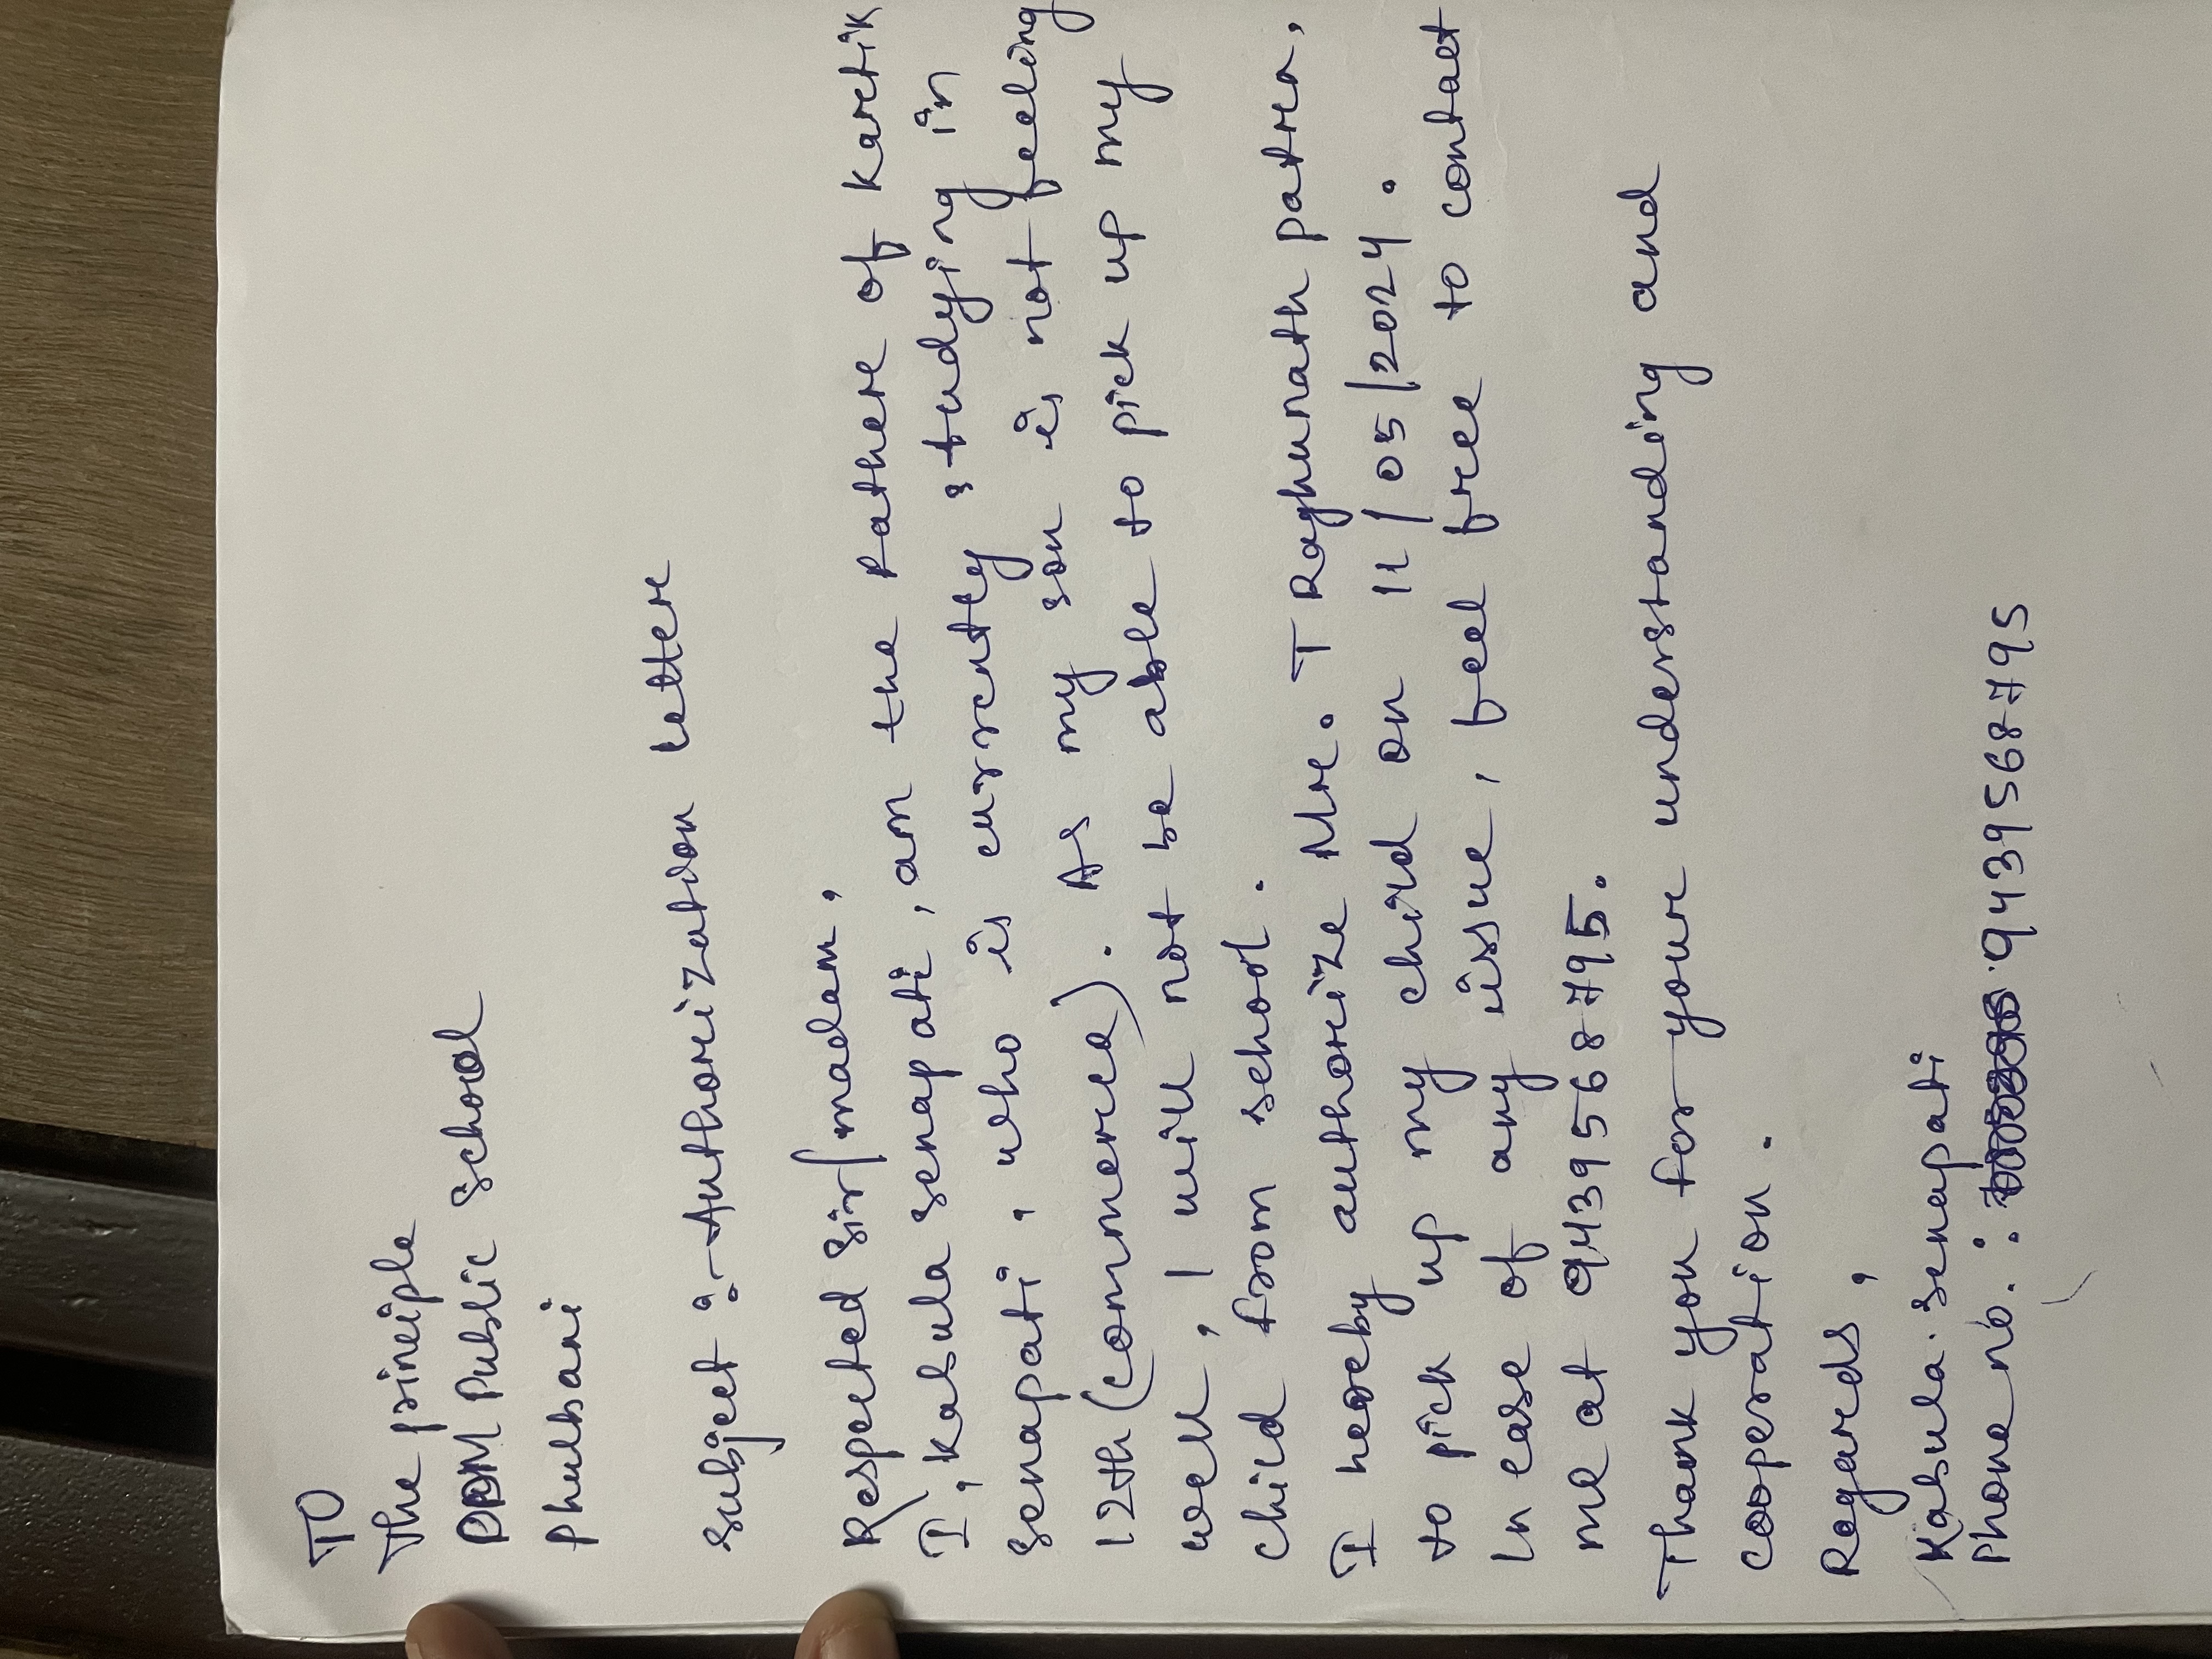 TO
The principle
DDM Public School
Phulbani
Subject :- Authorization letter
Respected Sir/madam,
I, Kabula senapati, am the Father of Kartik
Senapati, who is currently studying in
12th (commerce). As my son is not feeling
well, I will not be able to pick up my
child from school.
I hereby authorize Mr. T Raghunath patra,
to pick up my child on 11/05/2024.
In case of any issue, feel free to contact
me at 9439568795.
Thank you for your understanding and
cooperation.
Regards,
Kabula senapati
Phone no. : 9439568795